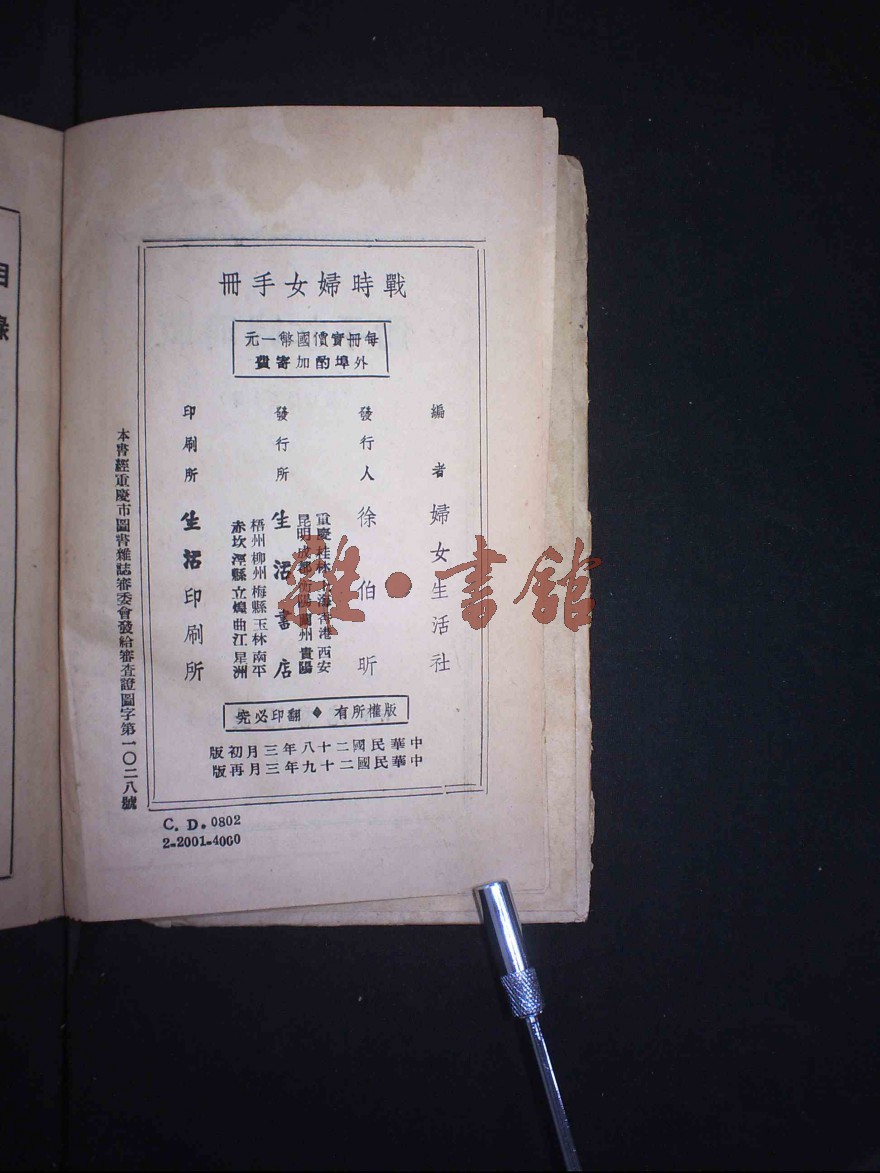 戰時婦女手冊
每冊實價國幣一元
外埠酌加寄費
編者 婦女生活社
發行人 徐伯昕
發行所 生活書店
重慶 桂林 上海 香港 西安
昆明 成都 衡陽 蘭州 貴陽
梧州 柳州 梅縣 玉林 南平
赤坎 涇縣 立煌 曲江 星洲
印刷所 生活印刷所
版權所有◆翻印必究
中華民國二十八年三月初版
中華民國二十九年三月再版
本書經重慶市圖書雜誌審委會發給審查證圖字第一〇二八號
C. D. 0802
2-2001-4000
目錄
雜·書館